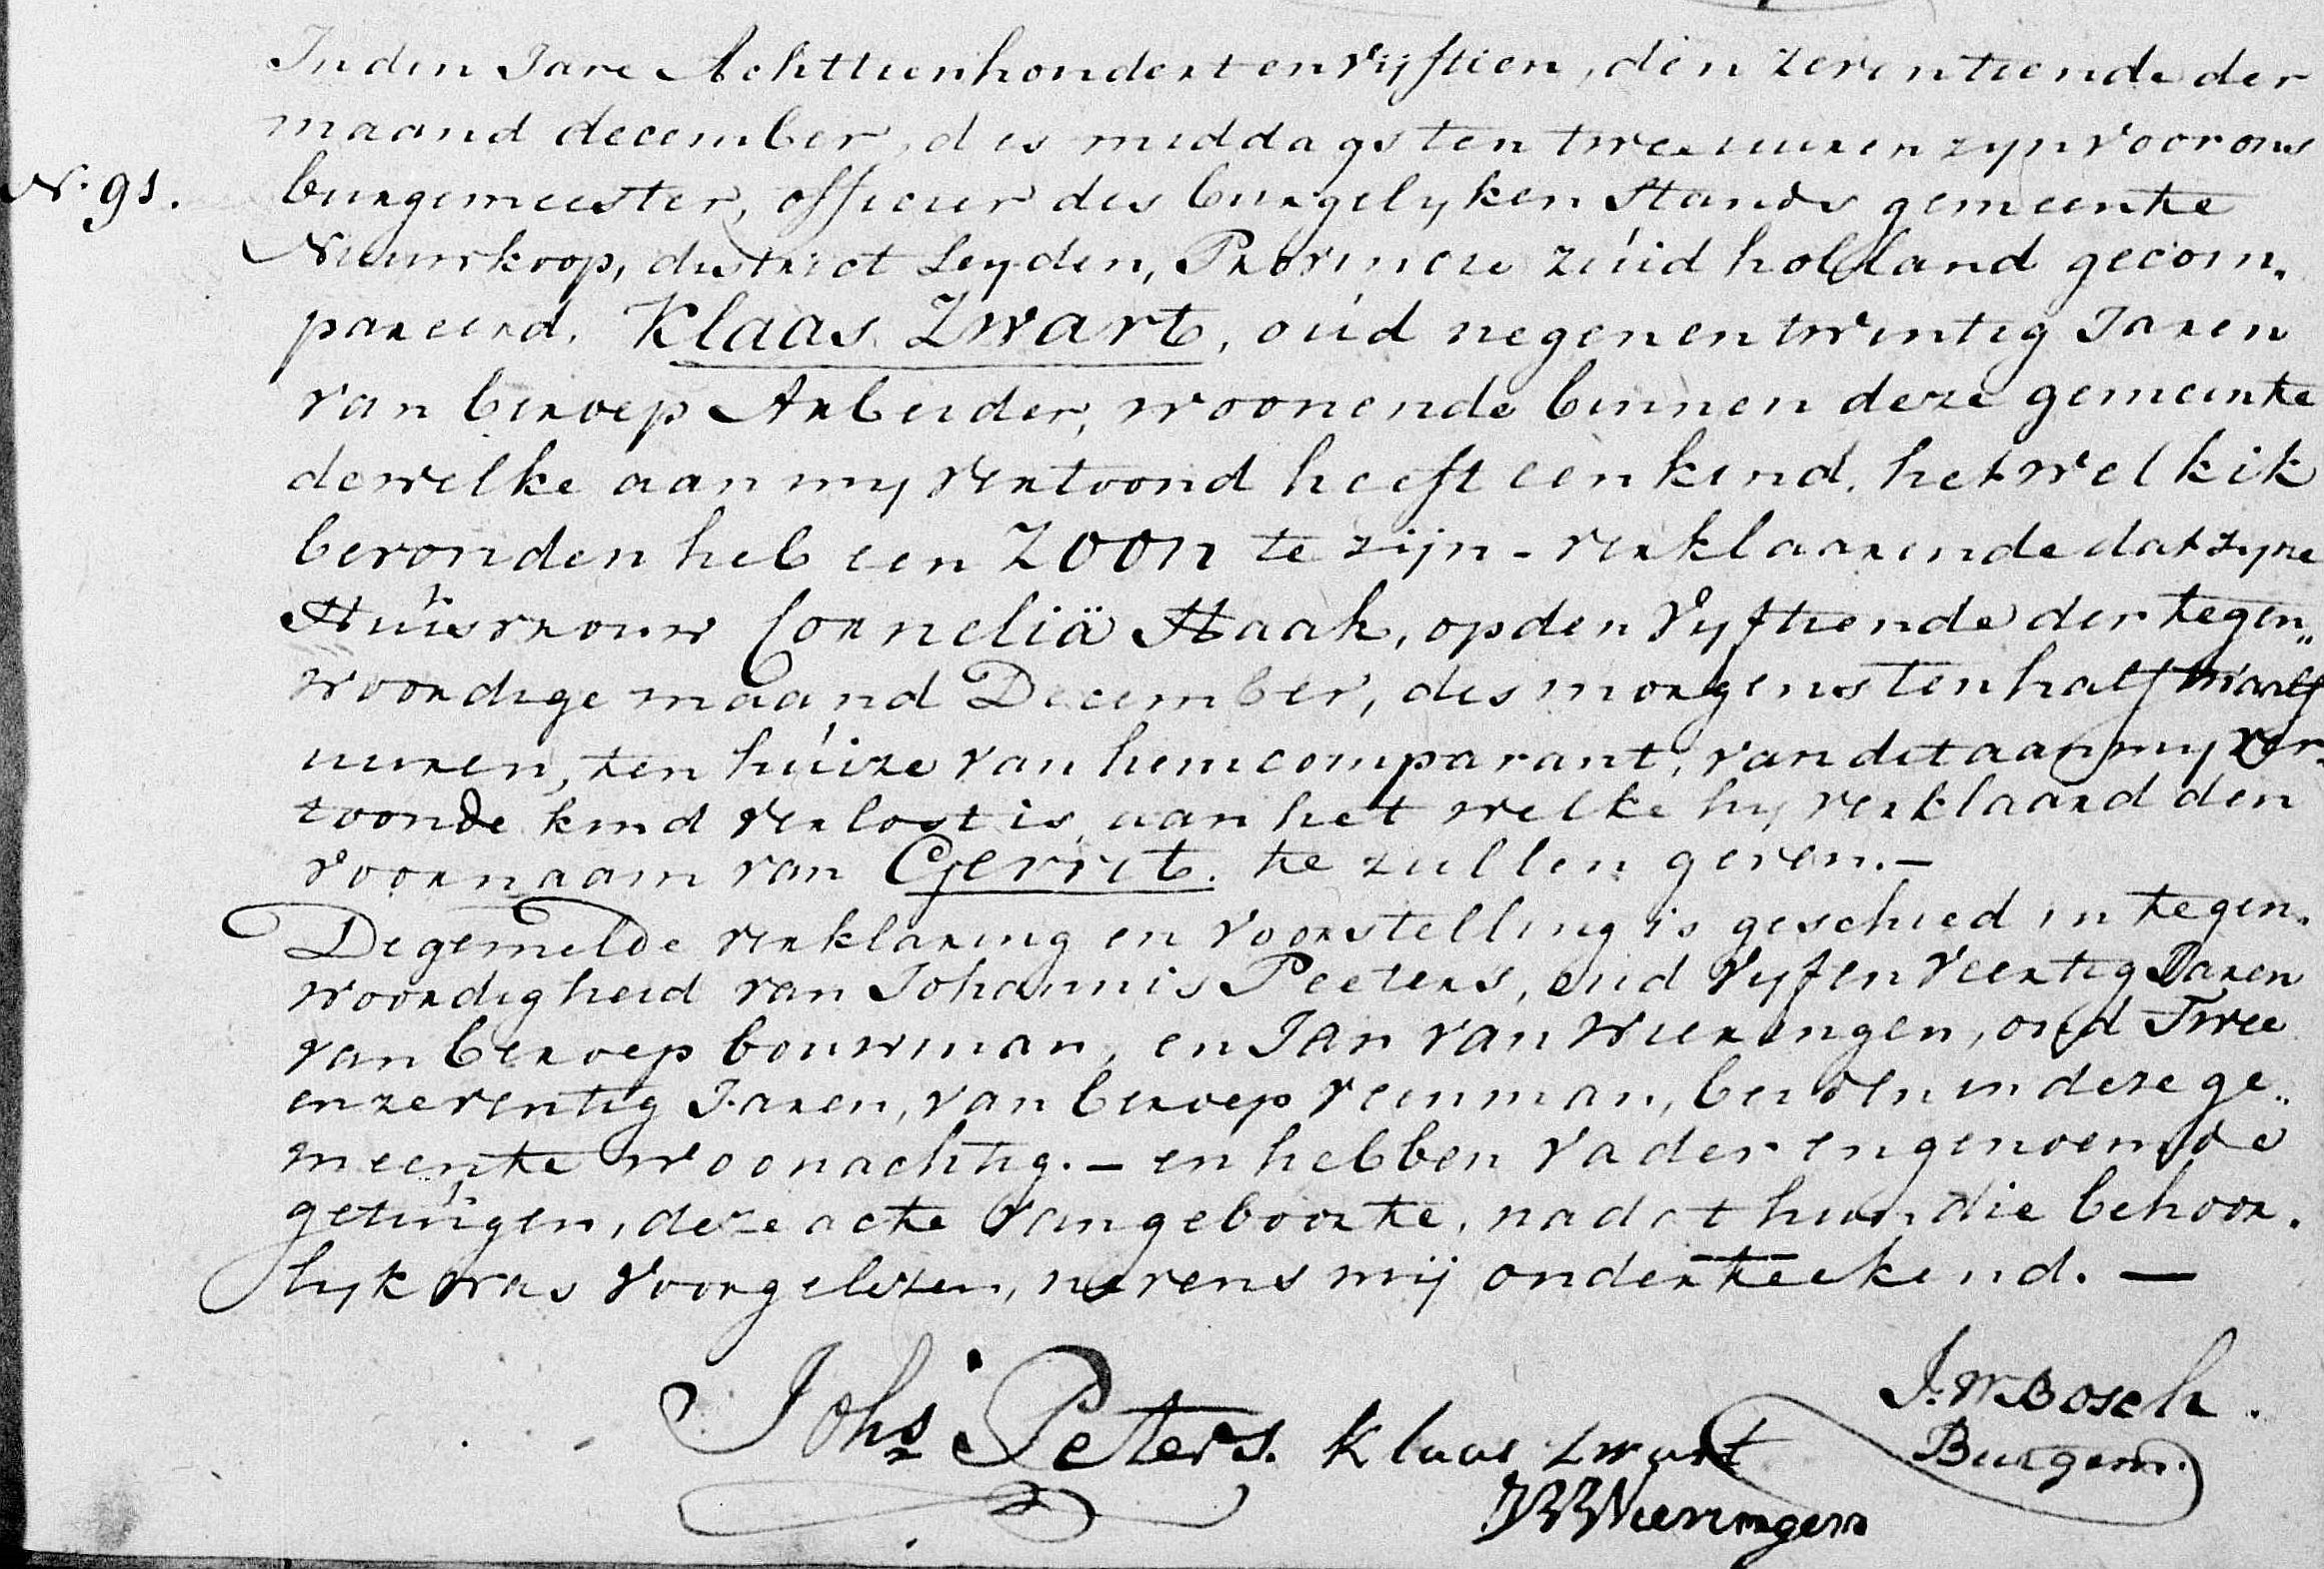 In den Jare Achttienhondert en vijftien, den zeventiende der
maand december, des middags ten twee uuren zyn voor ons
N. 91. burgemeester, officier des burgelyken Stands gemeente
Nieuwkoop, district Leyden, Provincie zuid holland gecom„
pareerd. Klaas Zwart, oud negenentwintig Jaren
van beroep Arbeider, woonende binnen deze gemeente
dewelke aan my vertoond heeft een kind, het welk ik
bevonden heb een Zoon te zijn - verklaarende dat zyne
Huisvrouw Corneliä Haak, op den Vyftiende der tegen„
woordige maand December, des morgens ten half twaalf
uuren, ten huize van hem comparant, van dit aan my ver„
toonde kind verlost is, aan het welke hy verklaard den
voornaam van Gerrit te zullen geven.—
De gemelde verklaring en voorstelling is geschied in tegen„
woordigheid van Johannis Peeters, oud vyf en veertig Jaren
van beroep bouwman, en Jan van Wieringen, oud Twee
en zeventig Jaren, van beroep veenman, beiden in deze ge„
meente woonachtig. — en hebben vader en genoemde
getuigen, deze acte van geboorte, nadat hun die behoor„
lyk was voorgelezen, nevens mij onderteekend. —
J. W Bosch.
Johs Peters. Klaas Zwart Burgem.
Wieringen